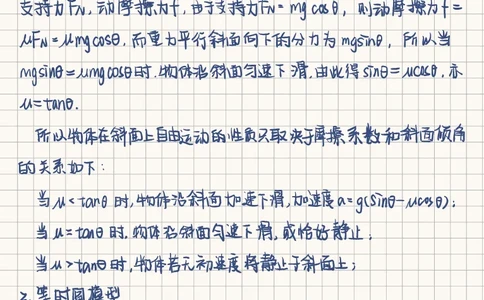 支持力FN,动摩擦力f,由于支持力FN=mgcosθ,则动摩擦力f=
μFN=μmgcosθ,而重力平行斜面向下的分力为mgsinθ,所以当
mgsinθ=μmgcosθ时,物体沿斜面匀速下滑,由此得sinθ=μcosθ,亦
μ=tanθ.
所以物体在斜面上自由运动的性质只取决于摩擦系数和斜面倾角
的关系如下:
当μ<tanθ时,物体沿斜面加速下滑,加速度a=g(sinθ-μcosθ);
当μ=tanθ时,物体沿斜面匀速下滑,或恰好静止;
当μ>tanθ时,物体若无初速度将静止于斜面上;
2.等时圆模型